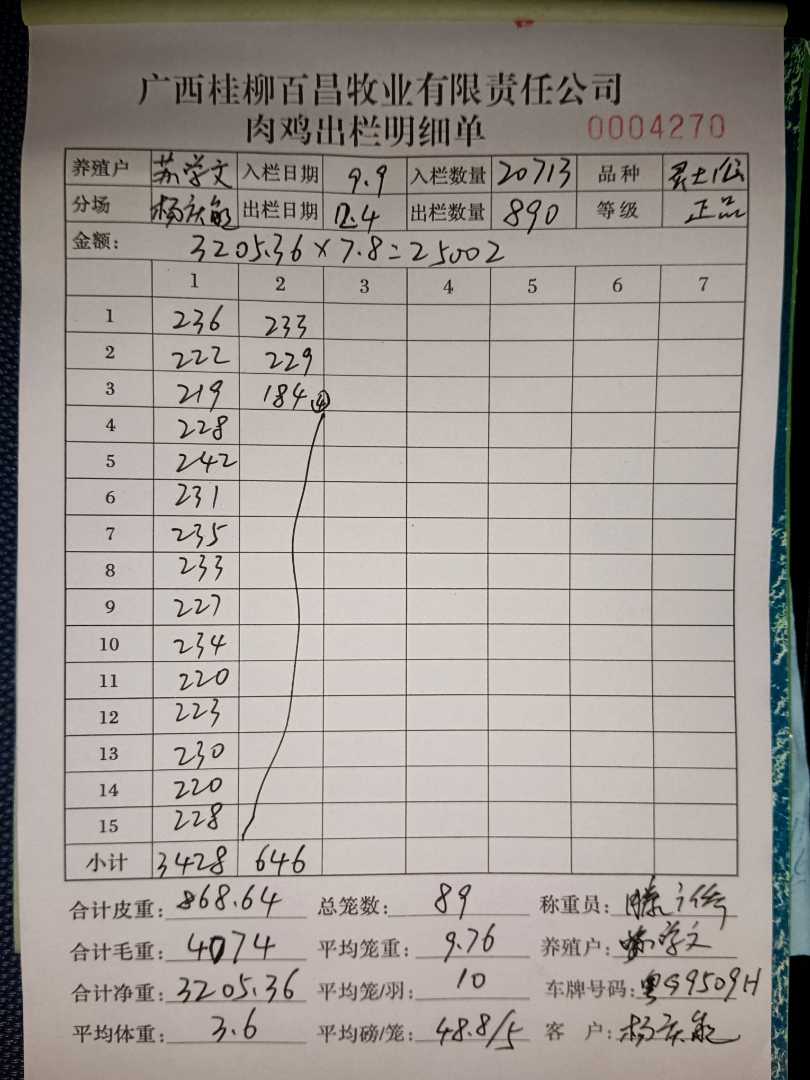 广西桂柳百昌牧业有限责任公司
肉鸡出栏明细单 0004270
养殖户 苏学文 入栏日期 9.9 入栏数量 20713 品种
分场 杨庆能 出栏日期 12.4 出栏数量 890 等级 正品
金额: 3205.36×7.8=25002
1 2 3 4 5 6 7
1 236 233
2 222 229
3 219 184 ④
4 228
5 242
6 231
7 235
8 233
9 227
10 234
11 220
12 223
13 230
14 220
15 228
小计 3428 646
合计皮重: 868.64 总笼数: 89 称重员:
合计毛重: 4074 平均笼重: 9.76 养殖户: 苏学文
合计净重: 3205.36 平均笼/羽: 10 车牌号码: 粤G9509H
平均体重: 3.6 平均磅/笼: 48.8/5 客 户: 杨庆能